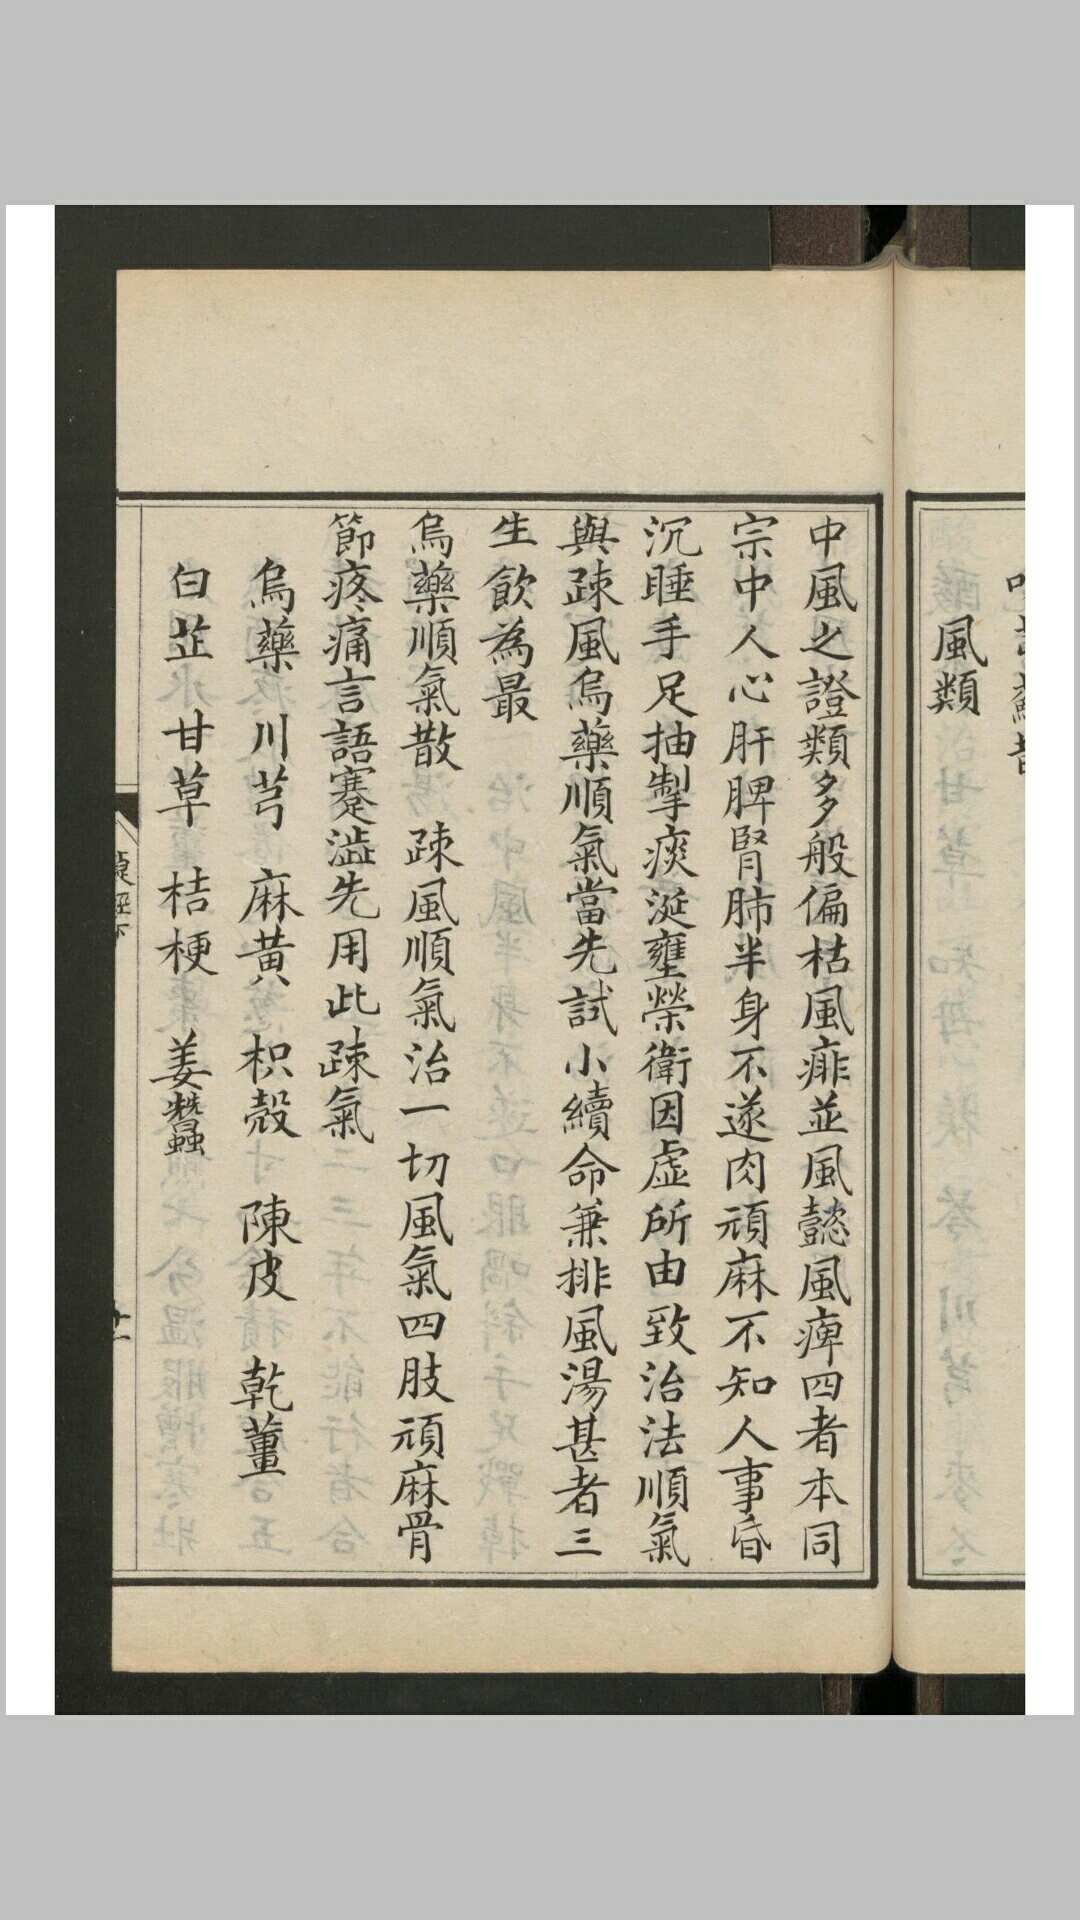 風類
中風之證類多般偏枯風痱並風懿風痺四者本同
宗中人心肝脾腎肺半身不遂肉頑麻不知人事昏
沉睡手足抽掣痰涎壅榮衛因虛所由致治法順氣
與疎風烏藥順氣當先試小續命兼排風湯甚者三
生飲為最
烏藥順氣散 疎風順氣治一切風氣四肢頑麻骨
節疼痛言語蹇澁先用此疎氣
烏藥 川芎 麻黄 枳殼 陳皮 乾薑
白芷 甘草 桔梗 姜蠶